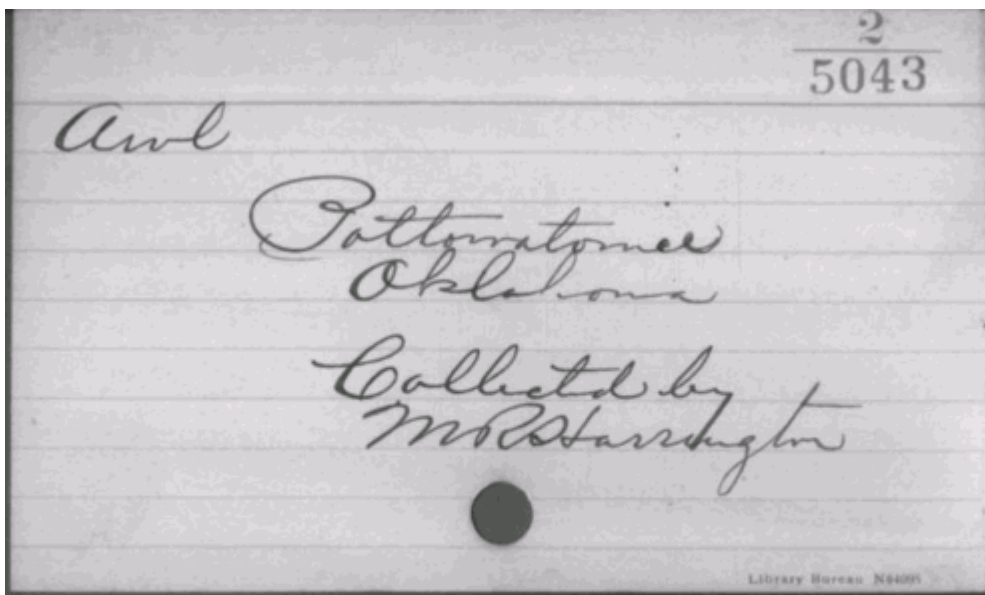 2
5043
Awl
Pottowatomie
Oklahoma
Collected by
MRHarrington
Library Bureau